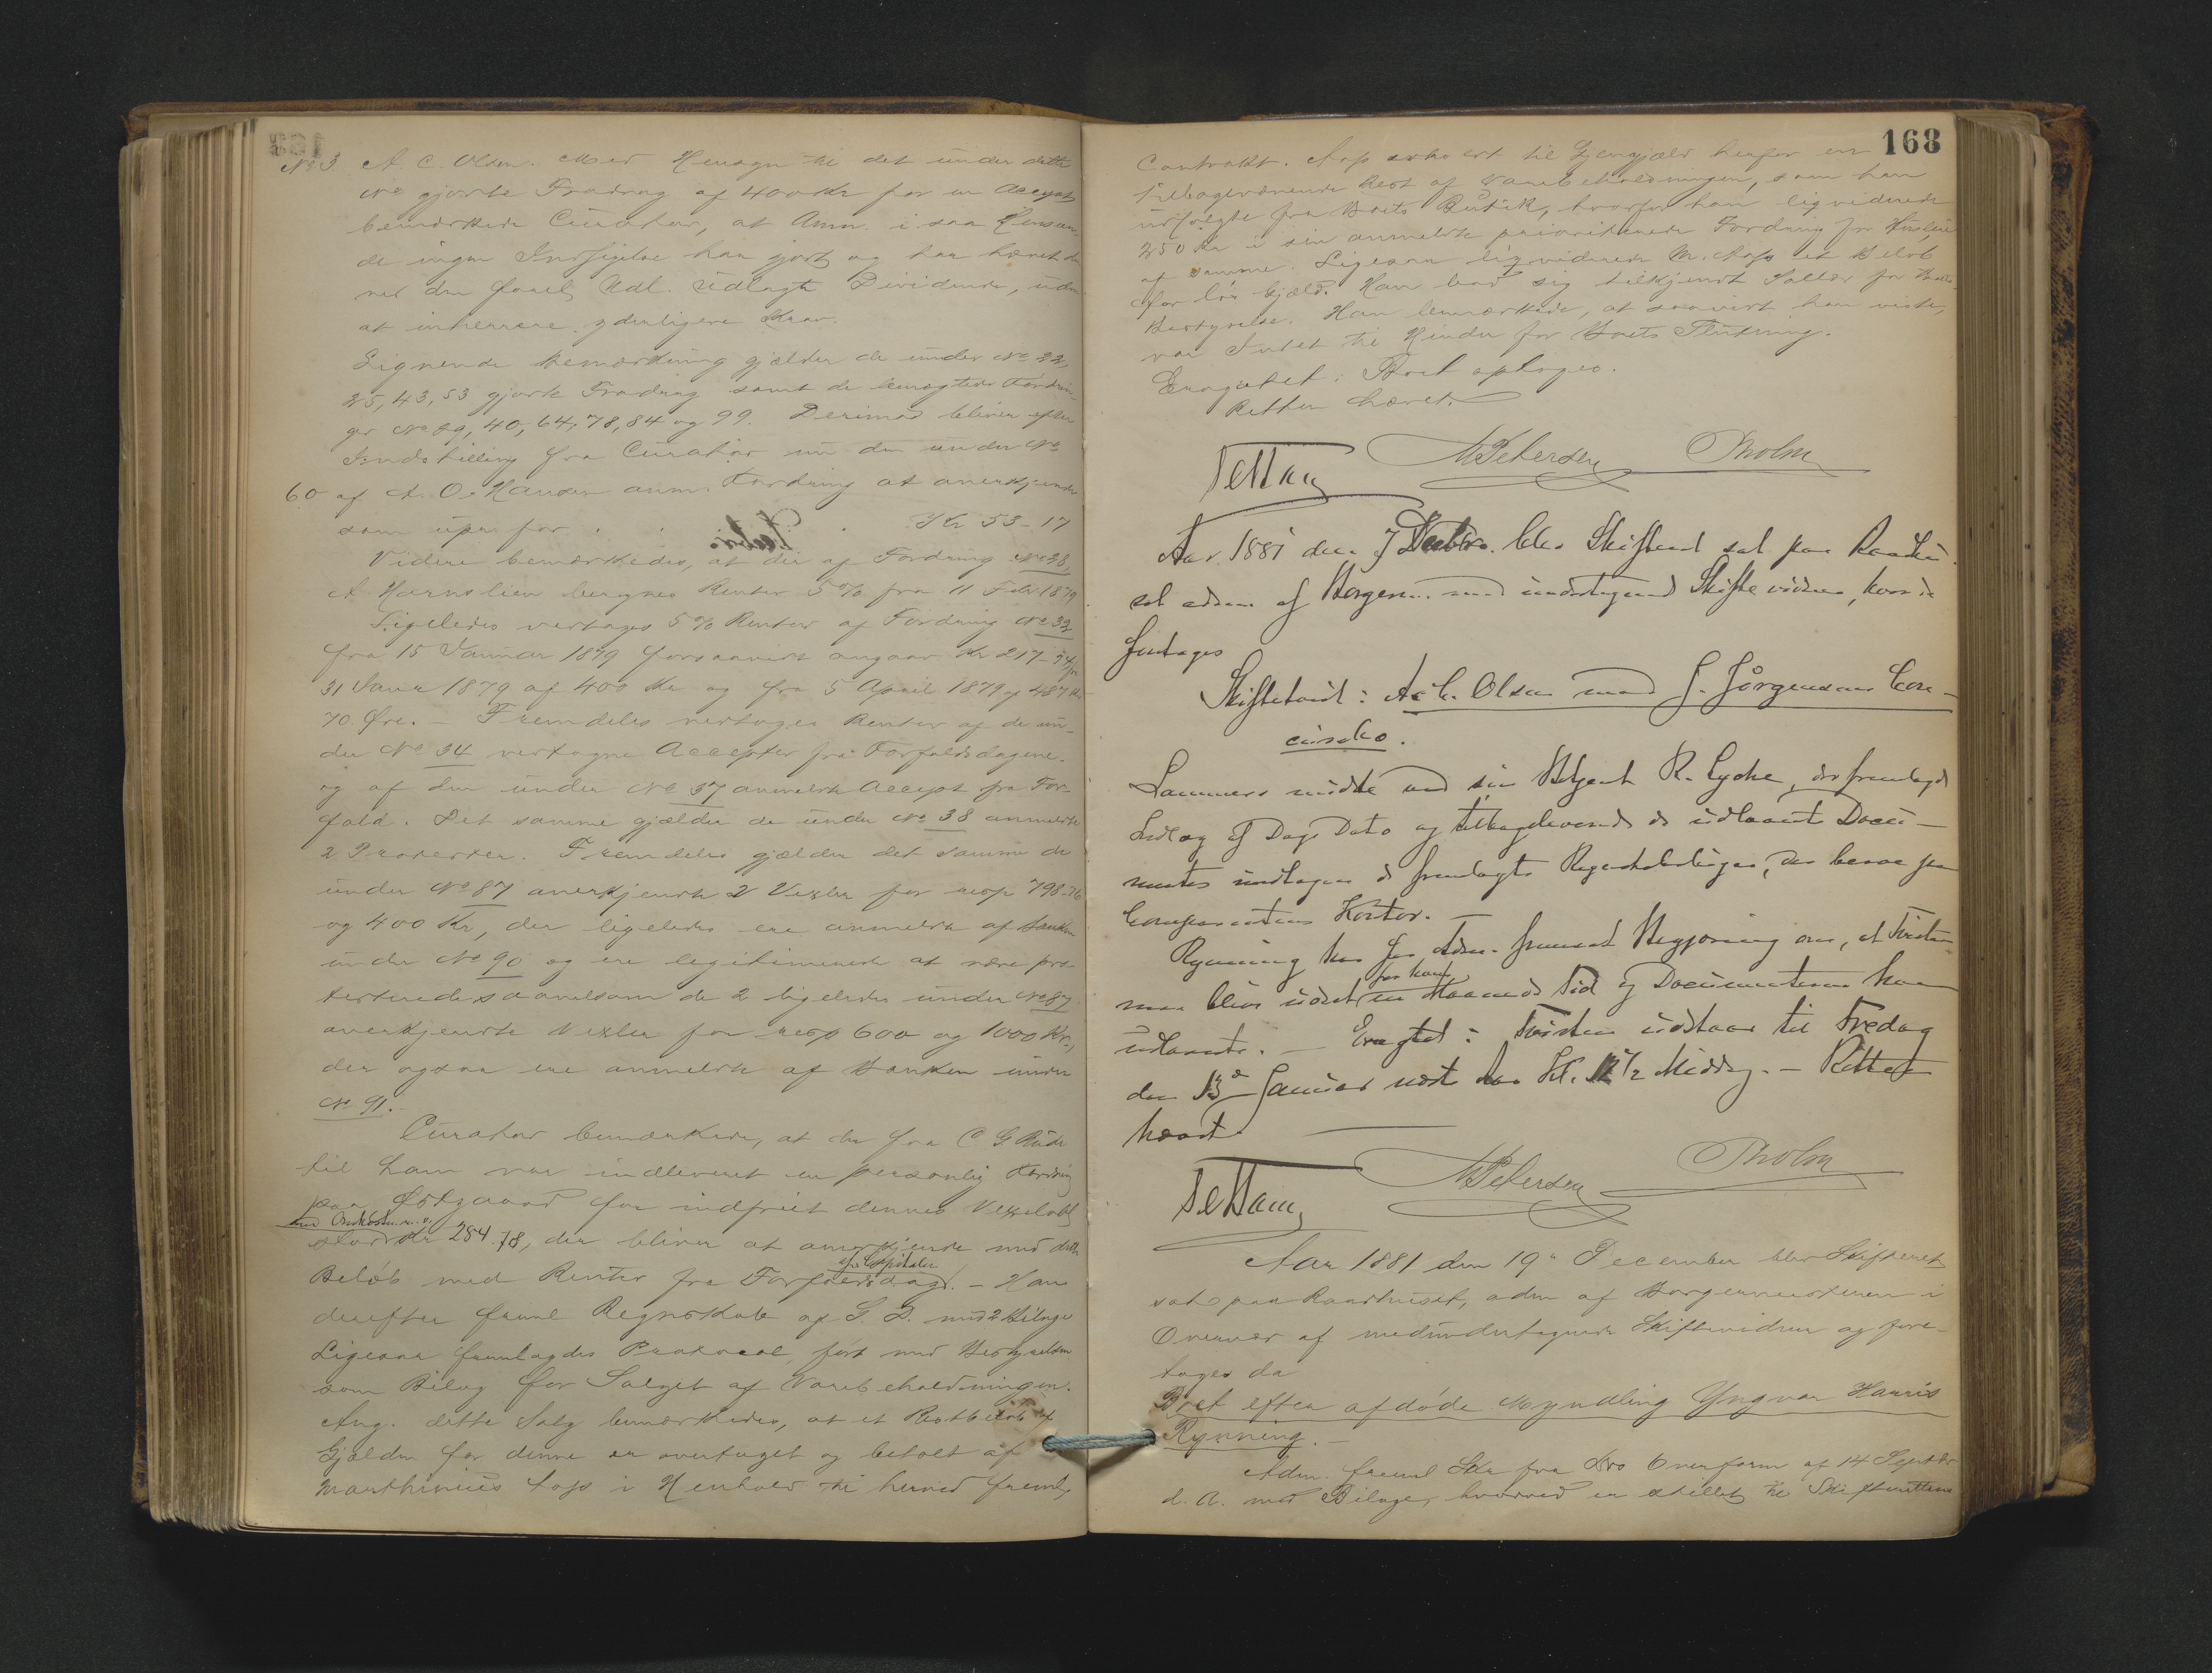 No 3 A. C. Olsen. Med Hensyn til det under dette
No gjorte Fradrag af 400 Kr for en Accept
bemærkede Curator, at Anm. i saa Henseen-
de ingen Indsigelse har gjort og har hævet den
ved den forel. Udl. udlagte Dividende, uden
at inherere yderligere Krav.
Lignende Bemærkning gjælder de under No 22,
25, 43, 53 gjorte Fradrag samt de benægtede Fordrin-
ger No 29, 40, 64, 78, 84 og 99. Derimod bliver efter
Indstilling fra Curator nu den under No
60 af A. O. Hansen anm. Fordring at anerkjende
som upr. for . . . Kr 53-17
Videre bemærkedes, at der af Fordring No 28,
A. beregnes Renter 5 % fra 11 Febr 1879
Ligeledes vedtages 5 % Renter af Fordring No 32
fra 15 Januar 1879 forsaavidt angaar Kr 217-74, fra
31 Janr 1879 af 400 Kr og fra 5 April 1879 af 487 Kr
70 Øre. – Fremdeles vedtages Renter af de un-
der No 34 vedtagne Accepter fra Forfaldsdagene
og af den under No 37 anmeldte Accept fra For-
fald. Det samme gjælder de under No 38 anmeldte
2 Protester. Fremdeles gjælder det samme de
under No 87 anerkjendte 2 Vexler for resp 798-76
og 400 Kr, der ligeledes ere anmeldte af Banken
under No 90 og ere legitimerede at være pro-
testerede saavelsom de 2 ligeledes under No 87
anerkjendte Vexler for resp 600 og 1000 Kr.,
der ogsaa ere anmeldte af Banken under
No 91.
Curator bemærkede, at der fra C. G.
til ham var indleveret en personlig Fordring
paa Østgaard for indfriet dennes Vexelobl.
med Omkostn. m. v.
stor Kr 284.78, der bliver at anerkjende med dette
af Capitalen
Beløb med Renter fra Forfaldsdag. – Han
derefter freml Regnskab af G. D. med 2 Bilage
Ligesaa fremlagdes Protocol, ført med Bestyrelsen
som Bilag for Salget af Varebeholdningen.
Ang. dette Salg bemærkedes, at et Restbeløb af
Gjælden for denne er overtaget og betalt af
Marthinius i Henhold til herved freml.
168
Contrakt. til Gjengjæld herfor en
tilbageværende Rest af Varebeholdningen, som han
udsolgte fra Boets Butik, hvorfor han ligviderede
250 Kr i sin anmeldte prioriterede Fordring for Husleie
af samme. Ligesaa ligviderede M. et Beløb
for løs Gjæld. Han bad sig tilkjendt Sallær for Boets
Bestyrelse. Han bemærkede, at saavidt han vidste,
var Intet til Hinder for Boets Slutning.
Eragtet: Boet optages.
Retten hævet.
M Petersen Tholm
Aar 1881 den 7 Decbr. blev Skifteret sat paa Raadhu-
set adm. af Borgerm. med undertegnede Skiftevidner, hvor da
foretages
Skiftetvist: A. C. Olsen mod J. Jörgensens Con-
curssbo.
Lammers mødte ved sin Betjent R. Lyche, der fremlagde
Indlæg af Dags Dato og tilbageleverede de udlaante Docu-
menter undtagen de fremlagte Regnskabsbøger, der beroe paa
Comparentens Kontor. –
Rynning har for Adm. fremsat Begjæring om, at Tvisten
for ham
maa blive udsat en Maaneds Tid og Documenterne ham
udlaante. – Eragtet: Tvisten udstaar til Fredag
den 13de Januar næste Aar Kl. 12½ Middag. – Retten
hævet
M Petersen Tholm
Aar 1881 den 19de December blev Skifteret
sat paa Raadhuset, adm af Borgermesteren i
Overvær af medundertegnede Skiftevidner og fore-
tages da
Boet efter afdøde Myndling Yngvar Harris
Rynning. –
Adm. freml Skr fra Overform af 14 Septbr
d. A. med Bilage, hvorved er stillet til Skifterettens